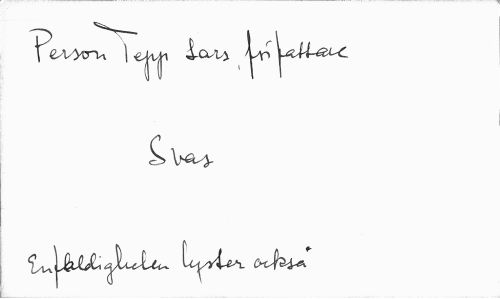 Person Tepp Lars, författare
Svar
Enfaldigheten lyster också